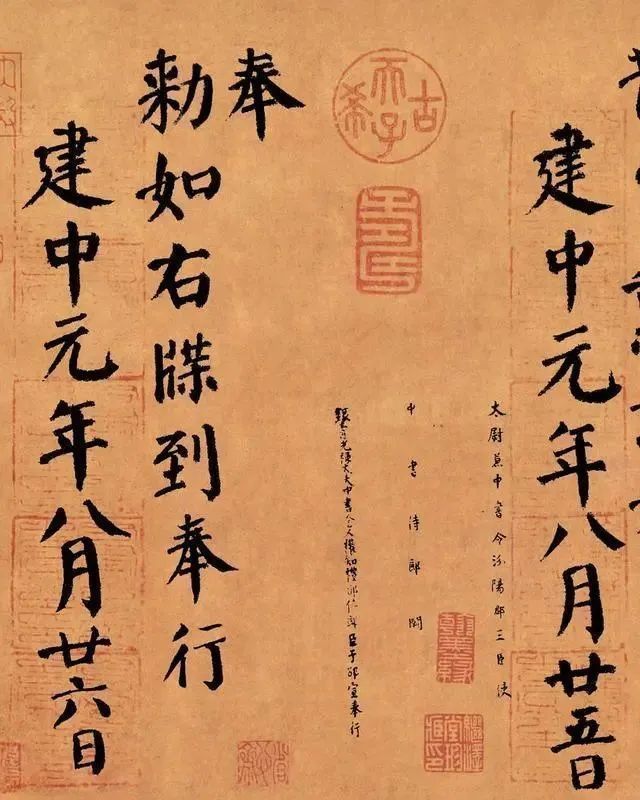 建中元年八月廿五日
太尉兼中書令汾陽郡王臣 使
中書侍郎闕
銀青光祿大夫中書舍人權知禮部侍郎臣于邵宣奉行
古希天子
壽
奉
勑如右牒到奉行
建中元年八月廿六日